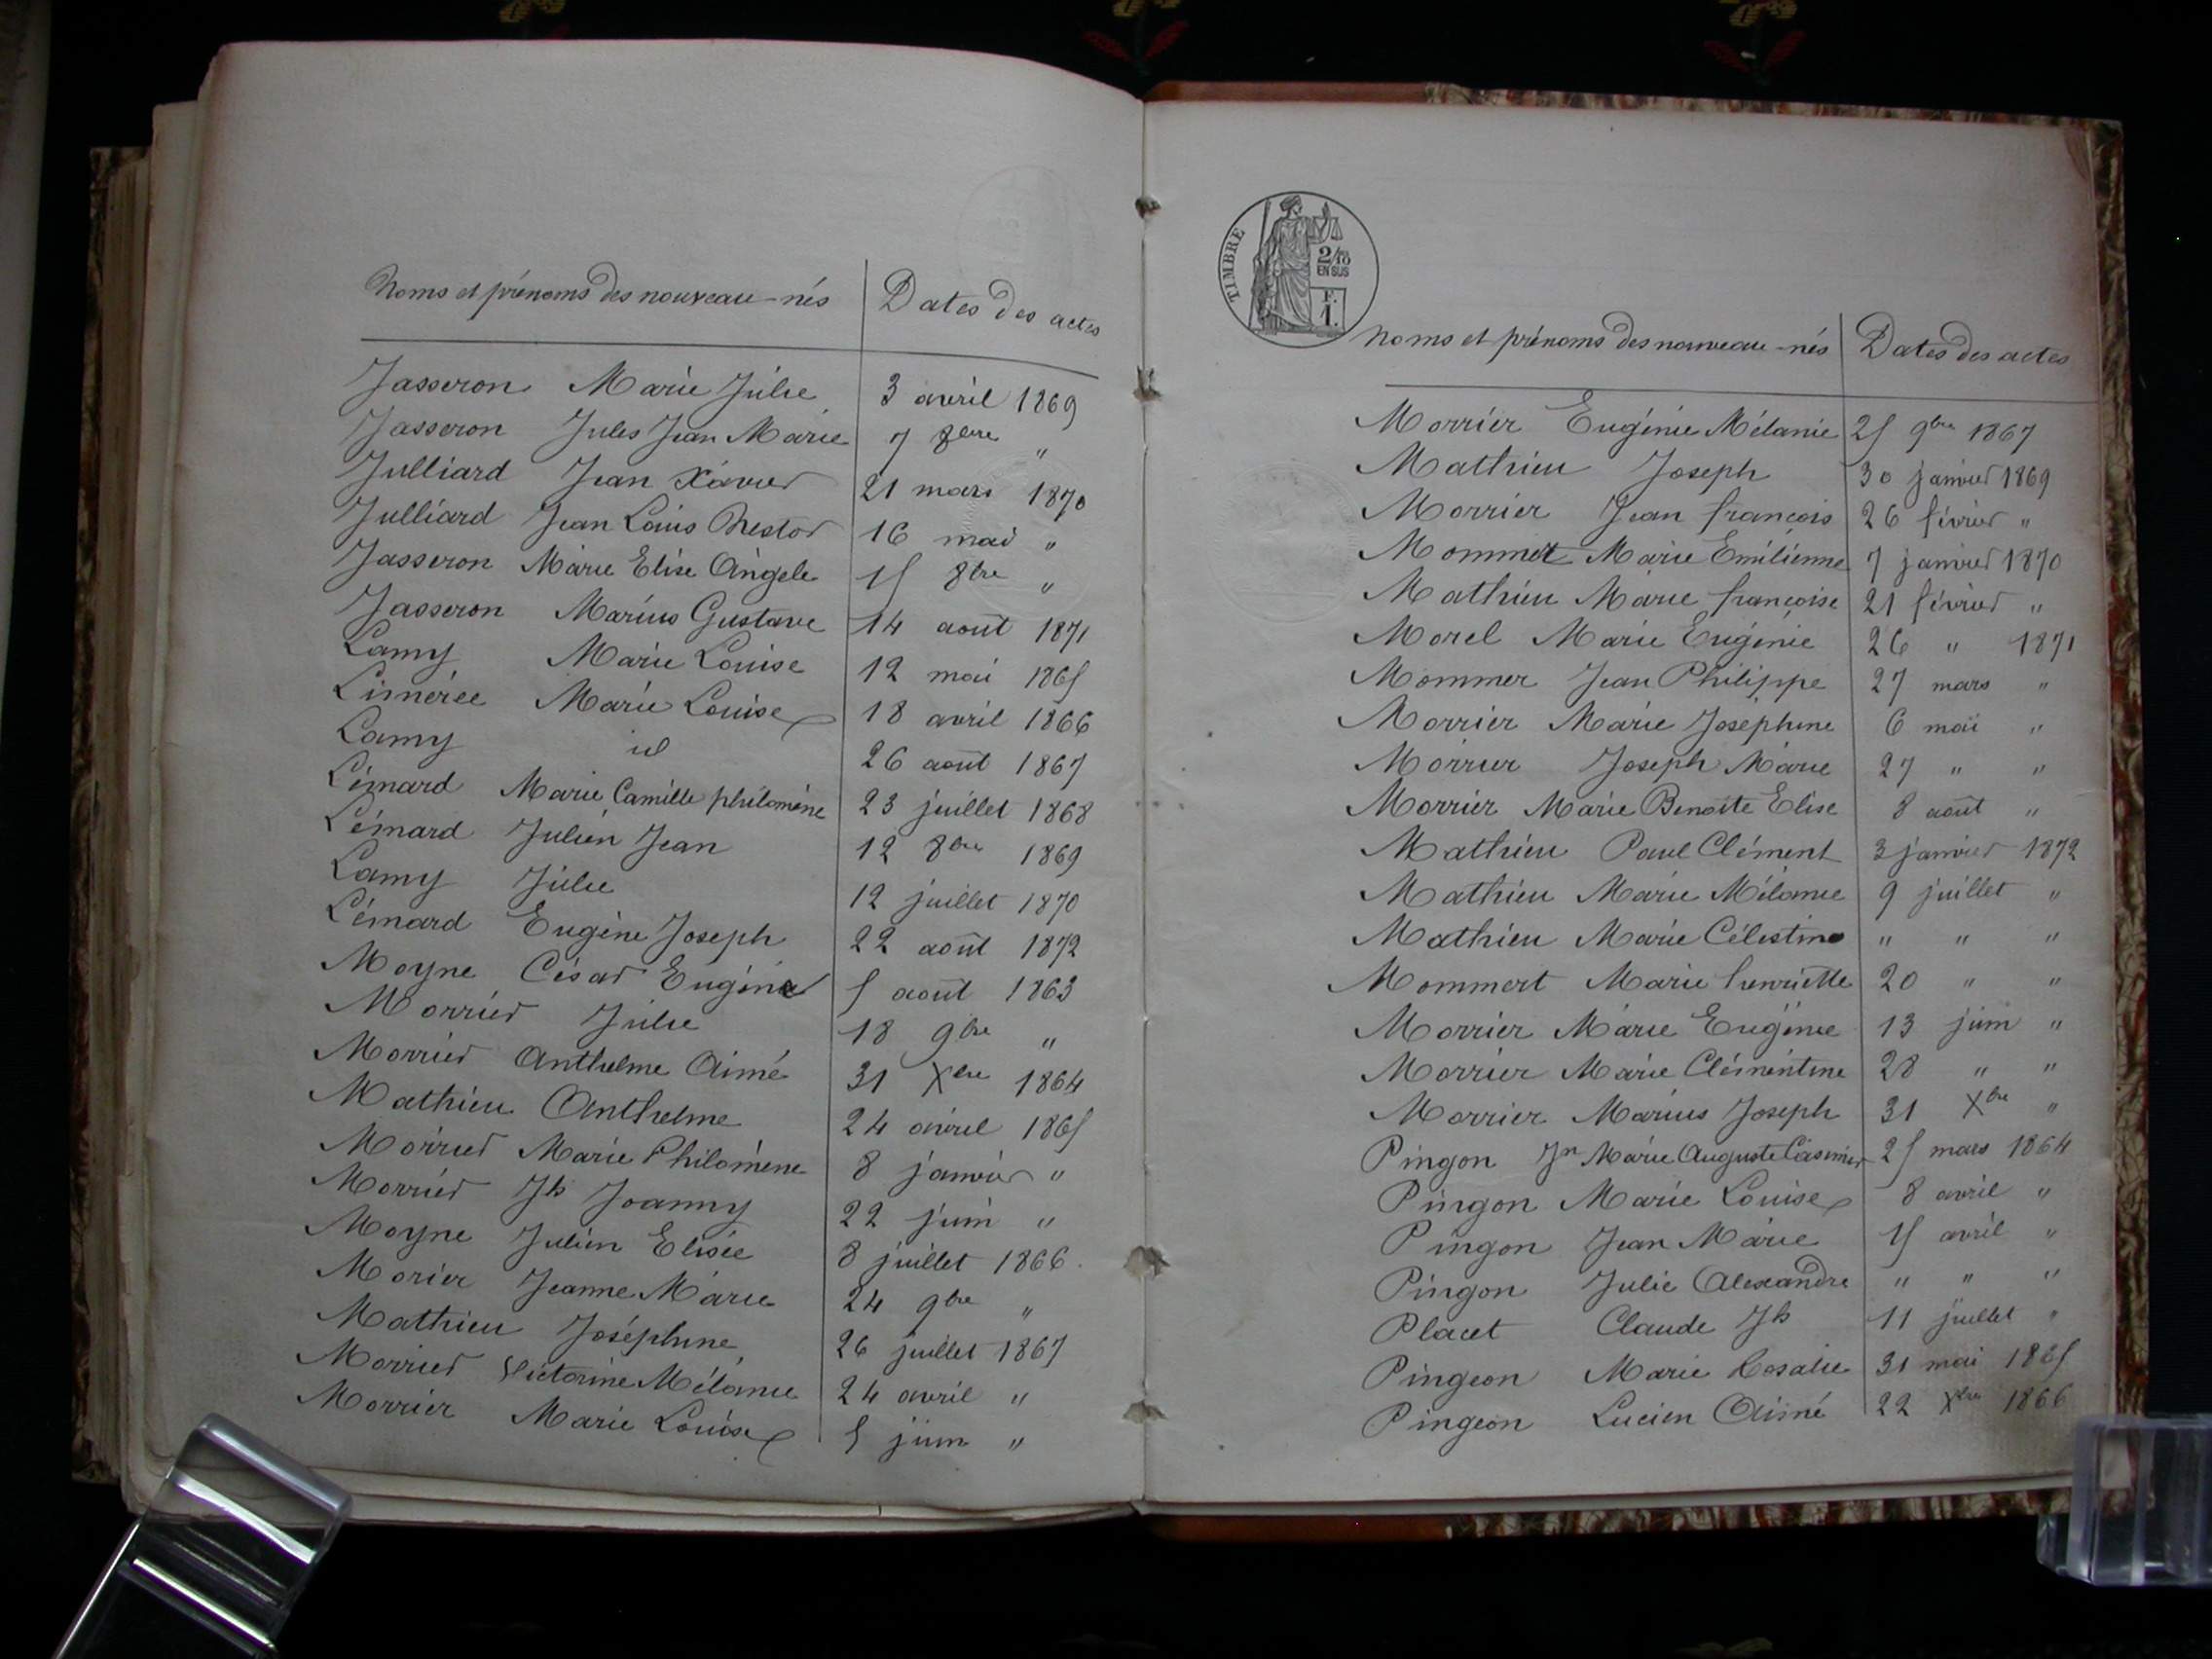 Noms et prénoms des nouveau-nés Dates des actes
Jasseron Marie Julie 3 avril 1869
Jasseron Jules Jean Marie 7 8bre "
Julliard Jean Xavier 21 mars 1870
Julliard Jean Louis Nestor 16 mai "
Jasseron Marie Elise Angèle 15 8bre "
Jasseron Marius Gustave 14 août 1871
Lamy Marie Louise 12 mai 1865
Limérée Marie Louise 18 avril 1866
Lamy id 26 août 1867
Lémard Marie Camille philomène 23 juillet 1868
Lémard Julien Jean 12 8bre 1869
Lamy Julie 12 juillet 1870
Lémard Eugène Joseph 22 août 1872
Moyne César Eugène 5 août 1863
Morrier Julie 18 9bre "
Morrier Anthelme Aimé 31 Xbre 1864
Mathieu Anthelme 24 avril 1865
Morrier Marie Philomène 8 janvier "
Morrier Jh Joanny 22 juin "
Moyne Julien Elisée 8 juillet 1866
Morier Jeanne Marie 24 9bre "
Mathieu Joséphine 26 juillet 1867
Morrier Victorine Mélanie 24 avril "
Morrier Marie Louise 5 juin "
TIMBRE
2/10
EN SUS
F.
1.
Noms et prénoms des nouveau-nés Dates des actes
Morrier Eugénie Mélanie 25 9bre 1867
Mathieu Joseph 30 janvier 1869
Morrier Jean françois 26 février "
Mommet Marie Emilienne 7 janvier 1870
Mathieu Marie françoise 21 février "
Morel Marie Eugénie 26 " 1871
Mommer Jean Philippe 27 mars "
Morrier Marie Joséphine 6 mai "
Morrier Joseph Marie 27 " "
Morrier Marie Benoite Elise 8 août "
Mathieu Paul Clément 3 janvier 1872
Mathieu Marie Mélanie 9 juillet "
Mathieu Marie Célestine " " "
Mommert Marie henriette 20 " "
Morrier Marie Eugénie 13 juin "
Morrier Marie Clémentine 28 " "
Morrier Marius Joseph 31 Xbre "
Pingon Jn Marie Auguste Casimir 25 mars 1864
Pingon Marie Louise 8 avril "
Pingon Jean Marie 15 avril "
Pingon Julie Alexandre " " "
Placet Claude Jh 11 juillet "
Pingeon Marie Rosalie 31 mai 1865
Pingeon Lucien Aimé 22 Xbre 1866